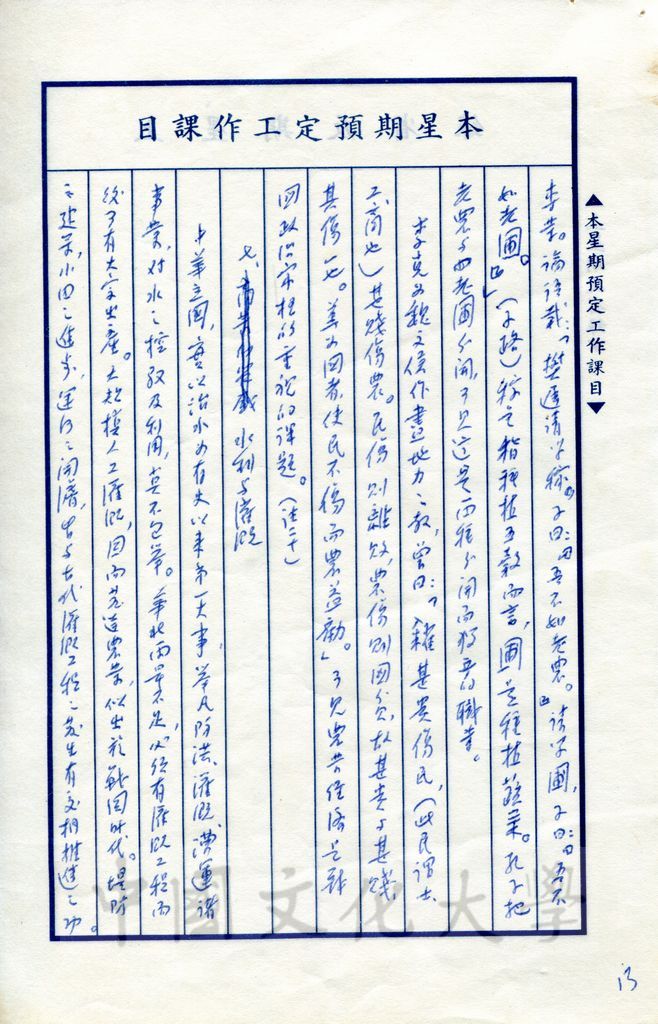 本星期預定工作課目
▲本星期預定工作課目▼
事業。論語載：「樊遲請學稼。子曰：『吾不如老農。』請學圃，子曰：『吾不
如老圃。』」（子路）稼是指種植五穀而言，圃是種植蔬菜。孔子把
老農與老圃分開，可見這是兩種分開而獨立的職業。
李克為魏文侯作盡地力之教，曾曰：「糴甚貴傷民，（此民謂士
工商也）甚賤傷農。民傷則離散，農傷則國貧，故甚貴與甚賤，
其傷一也。善為國者，使民不傷而農益勸。」可見農業經濟是戰
國政治家相的重視的課題。（註二十）
七、水利與灌溉
中華立國，實以治水為有史以來第一大事，舉凡防洪、灌溉、漕運諸
事業，對水之控馭及利用，莫不包舉。華北雨量不足，必須有灌溉工程而
後可有大宗出產。大規模人工灌溉，因而茂造農業，似出於戰國時代。堤防
之建築，小田之進步，運河之開濬，皆與古代灌溉工程之發生有交相推進之功。
中國文化大學
13